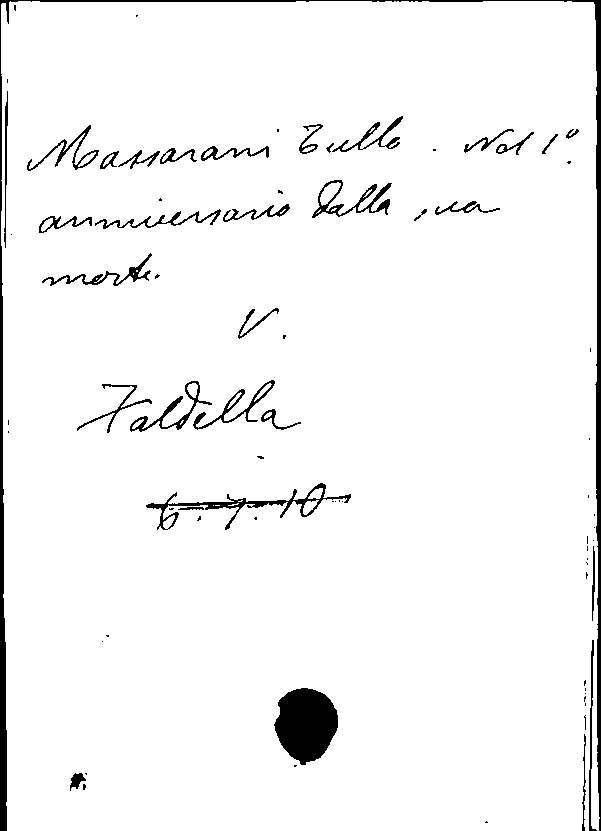 Massarani Tullo. Nel 1º
anniversario dalla sua
morte.
V.
Faldella
6.7.10